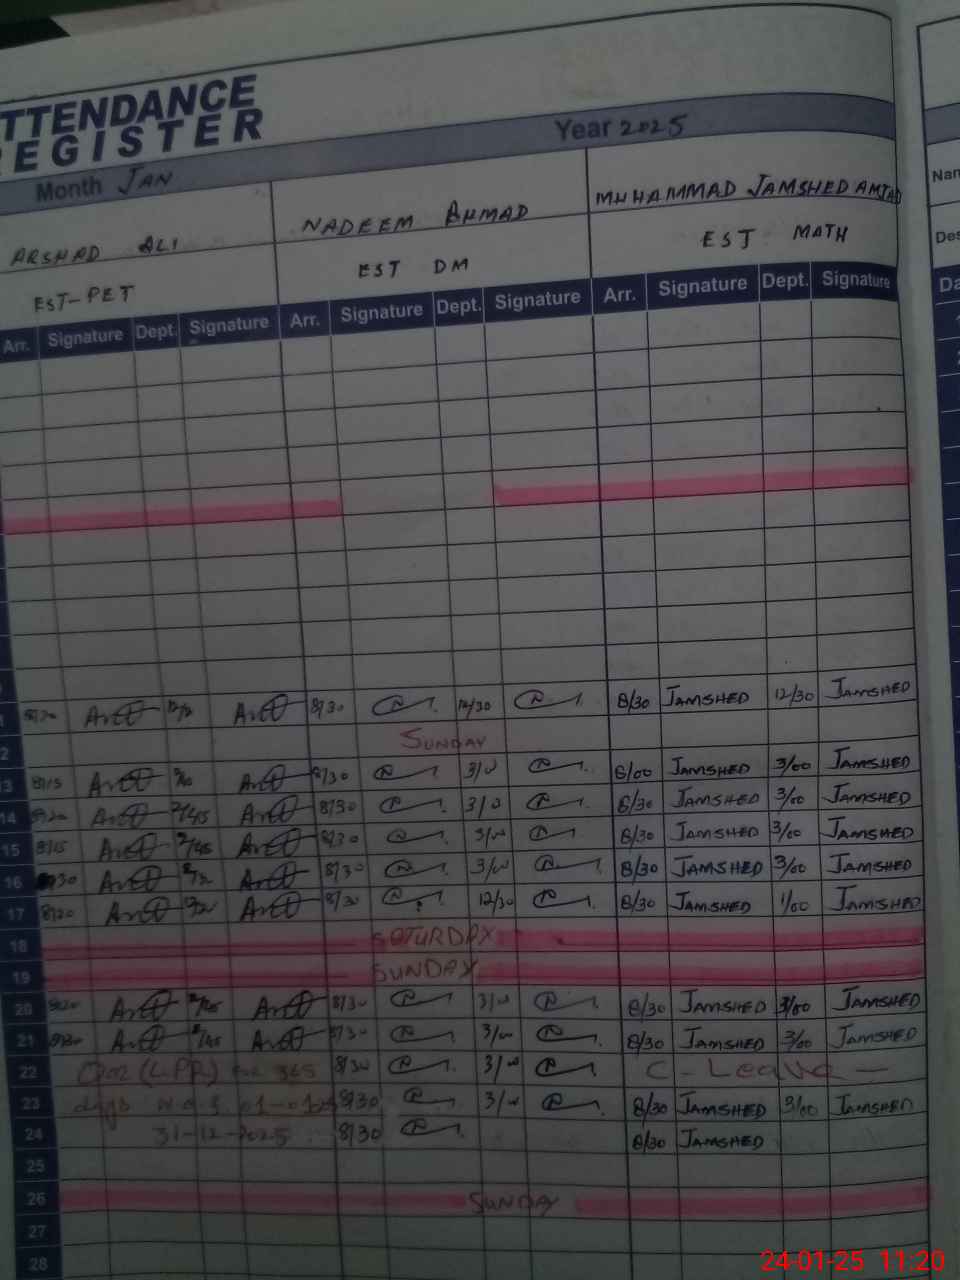 TTENDANCE
EGISTER
Month JAN Year 2025
ARSHAD ALI NADEEM AHMAD MUHAMMAD JAMSHED AMJAD
EST-PET EST DM EST MATH
Arr. Signature Dept. Signature Arr. Signature Dept. Signature Arr. Signature Dept. Signature
8/30 12/30 8/30 JAMSHED 12/30 JAMSHED
2 SUNDAY
13 8/15 8/30 3/00 JAMSHED 3/00 JAMSHED
14 8/20 2/45 8/30 3/00 8/30 JAMSHED 3/00 JAMSHED
15 8/15 2/45 8/30 3/00 8/30 JAMSHED 3/00 JAMSHED
16 8/30 3/00 8/30 JAMSHED 3/00 JAMSHED
17 8/20 8/30 12/30 8/30 JAMSHED 1/00 JAMSHED
18 SATURDAY
19 SUNDAY
20 8/20 8/30 3/00 8/30 JAMSHED 3/00 JAMSHED
21 8/30 3/00 8/30 JAMSHED 3/00 JAMSHED
22 (LPR) for 365 8/30 3/00 C-Leave
23 days w.e.f. 01-01-25 8/30 3/00 8/30 JAMSHED 3/00 JAMSHED
24 31-12-2025 8/30 8/30 JAMSHED
25
26 SUNDAY
27
28
Nan
Des
Da
24-01-25 11:20